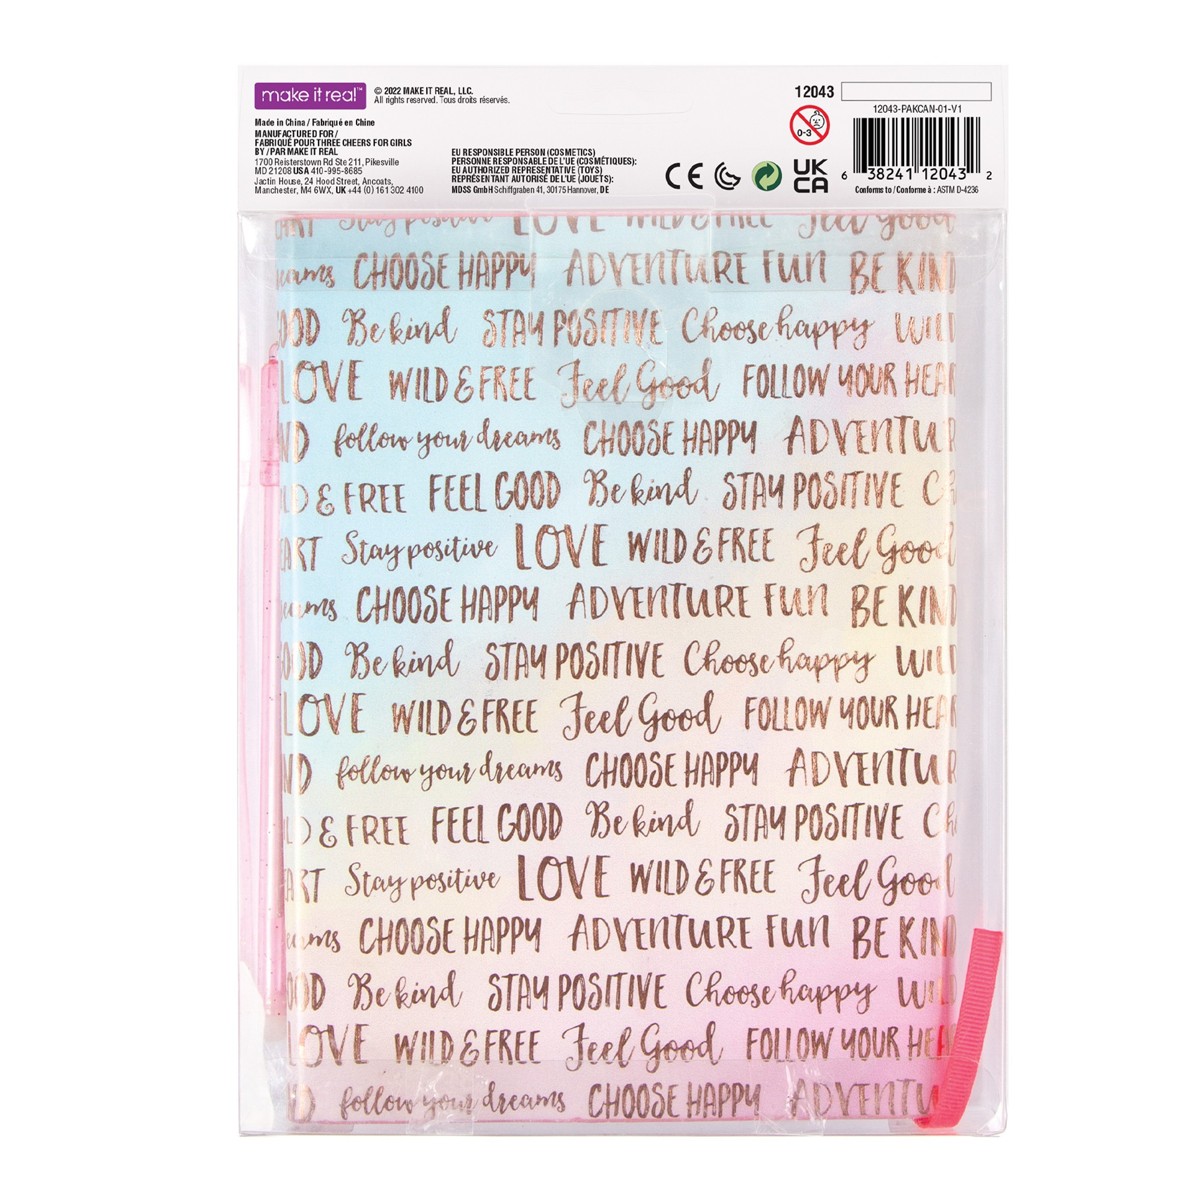 make it real™
© 2022 MAKE IT REAL, LLC.
All rights reserved. Tous droits réservés.
Made in China / Fabriqué en Chine
MANUFACTURED FOR /
FABRIQUÉ POUR THREE CHEERS FOR GIRLS
BY / PAR MAKE IT REAL
1700 Reisterstown Rd Ste 211, Pikesville
MD 21208 USA 410-995-8685
Jactin House, 24 Hood Street, Ancoats,
Manchester, M4 6WX, UK +44 (0) 161 302 4100
EU RESPONSIBLE PERSON (COSMETICS)
PERSONNE RESPONSABLE DE L'UE (COSMÉTIQUES):
EU AUTHORIZED REPRESENTATIVE (TOYS)
REPRÉSENTANT AUTORISÉ DE L'UE (JOUETS):
MDSS GmbH Schiffgraben 41, 30175 Hannover, DE
CE
UK
CA
12043
0-3
12043-PAKCAN-01-V1
6 38241 12043 2
Conforms to / Conforme à : ASTM D-4236
ART Stay positive LOVE WILD & FREE Feel Good
eams CHOOSE HAPPY ADVENTURE FUN BE KIND
OOD Be kind STAY POSITIVE Choose happy WILD
LOVE WILD & FREE Feel Good FOLLOW YOUR HEAR
ND follow your dreams CHOOSE HAPPY ADVENTUR
LD & FREE FEEL GOOD Be kind STAY POSITIVE Ch
EART Stay positive LOVE WILD & FREE Feel Good
eams CHOOSE HAPPY ADVENTURE FUN BE KIND
OOD Be kind STAY POSITIVE Choose happy WILD
LOVE WILD & FREE Feel Good FOLLOW YOUR HEAR
ND follow your dreams CHOOSE HAPPY ADVENTUR
LD & FREE FEEL GOOD Be kind STAY POSITIVE Ch
EART Stay positive LOVE WILD & FREE Feel Good
eams CHOOSE HAPPY ADVENTURE FUN BE KIN
OOD Be kind STAY POSITIVE Choose happy WIL
LOVE WILD & FREE Feel Good FOLLOW YOUR HEA
follow your dreams CHOOSE HAPPY ADVENTU